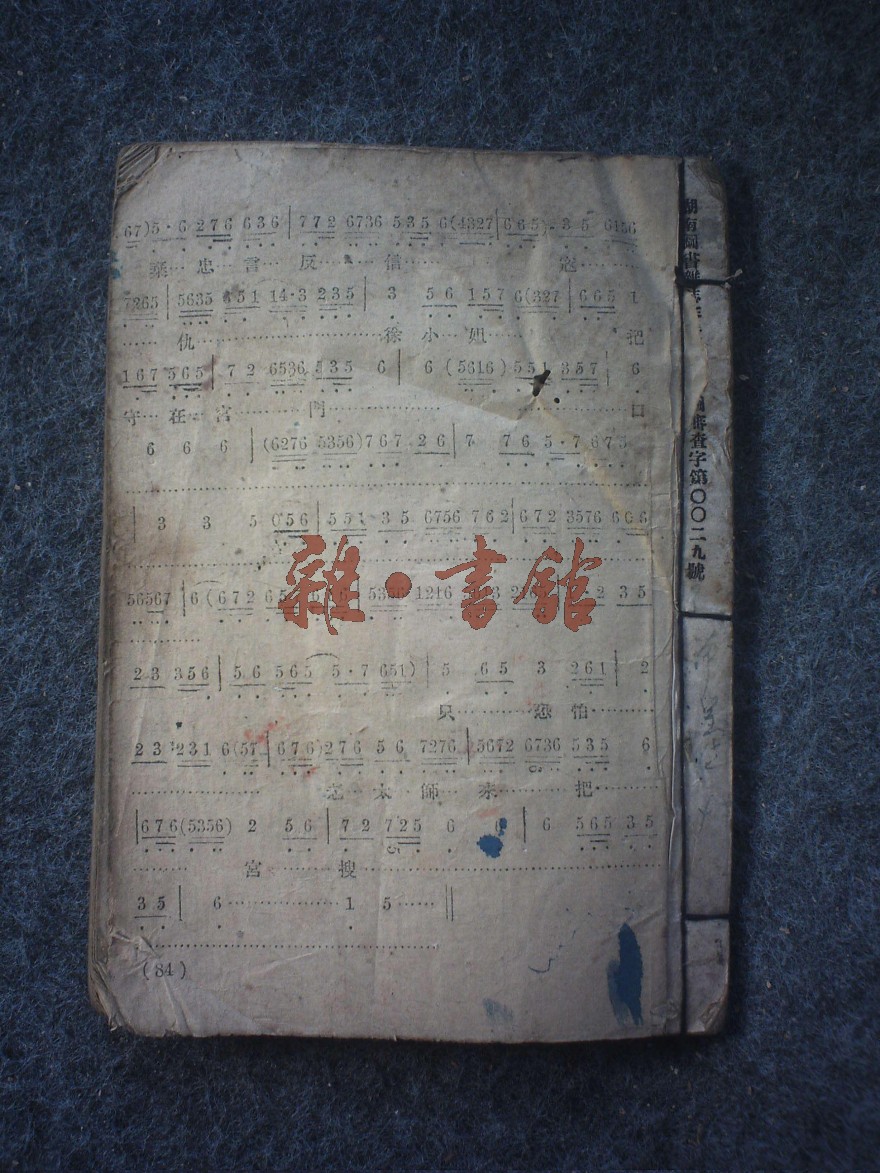 67)5·6 276 636|772 6736 5356(4327|665)·35 6156
棄…忠…言…反…信…寇…
7265|5635 651 14·3 235|3 56 157 6(327|665 1
……仇……徐…小…姐……把
167 565|72 6536 535 6|6 (5616) 551 357|6
守…在…宮…門……口
6 6 6 |(6276 5356)767 26|7 76 5·7675
|3 3 5 056|551 35 6756 762|672 3576 606
56567|6 (672 5356 1216 35
23 356|56 565 5·7 651)|5 65 3 261|2
只……恐…怕…
23 231 6(57|676)276 56 7276|5672 6736 535 6
太…師…來……把…
|676(5356) 2 56|72 725 6 6|6 565 35
……宮……搜……
35| 6………………1 5……||
(84)
審查字第〇〇二九號
雜·書館